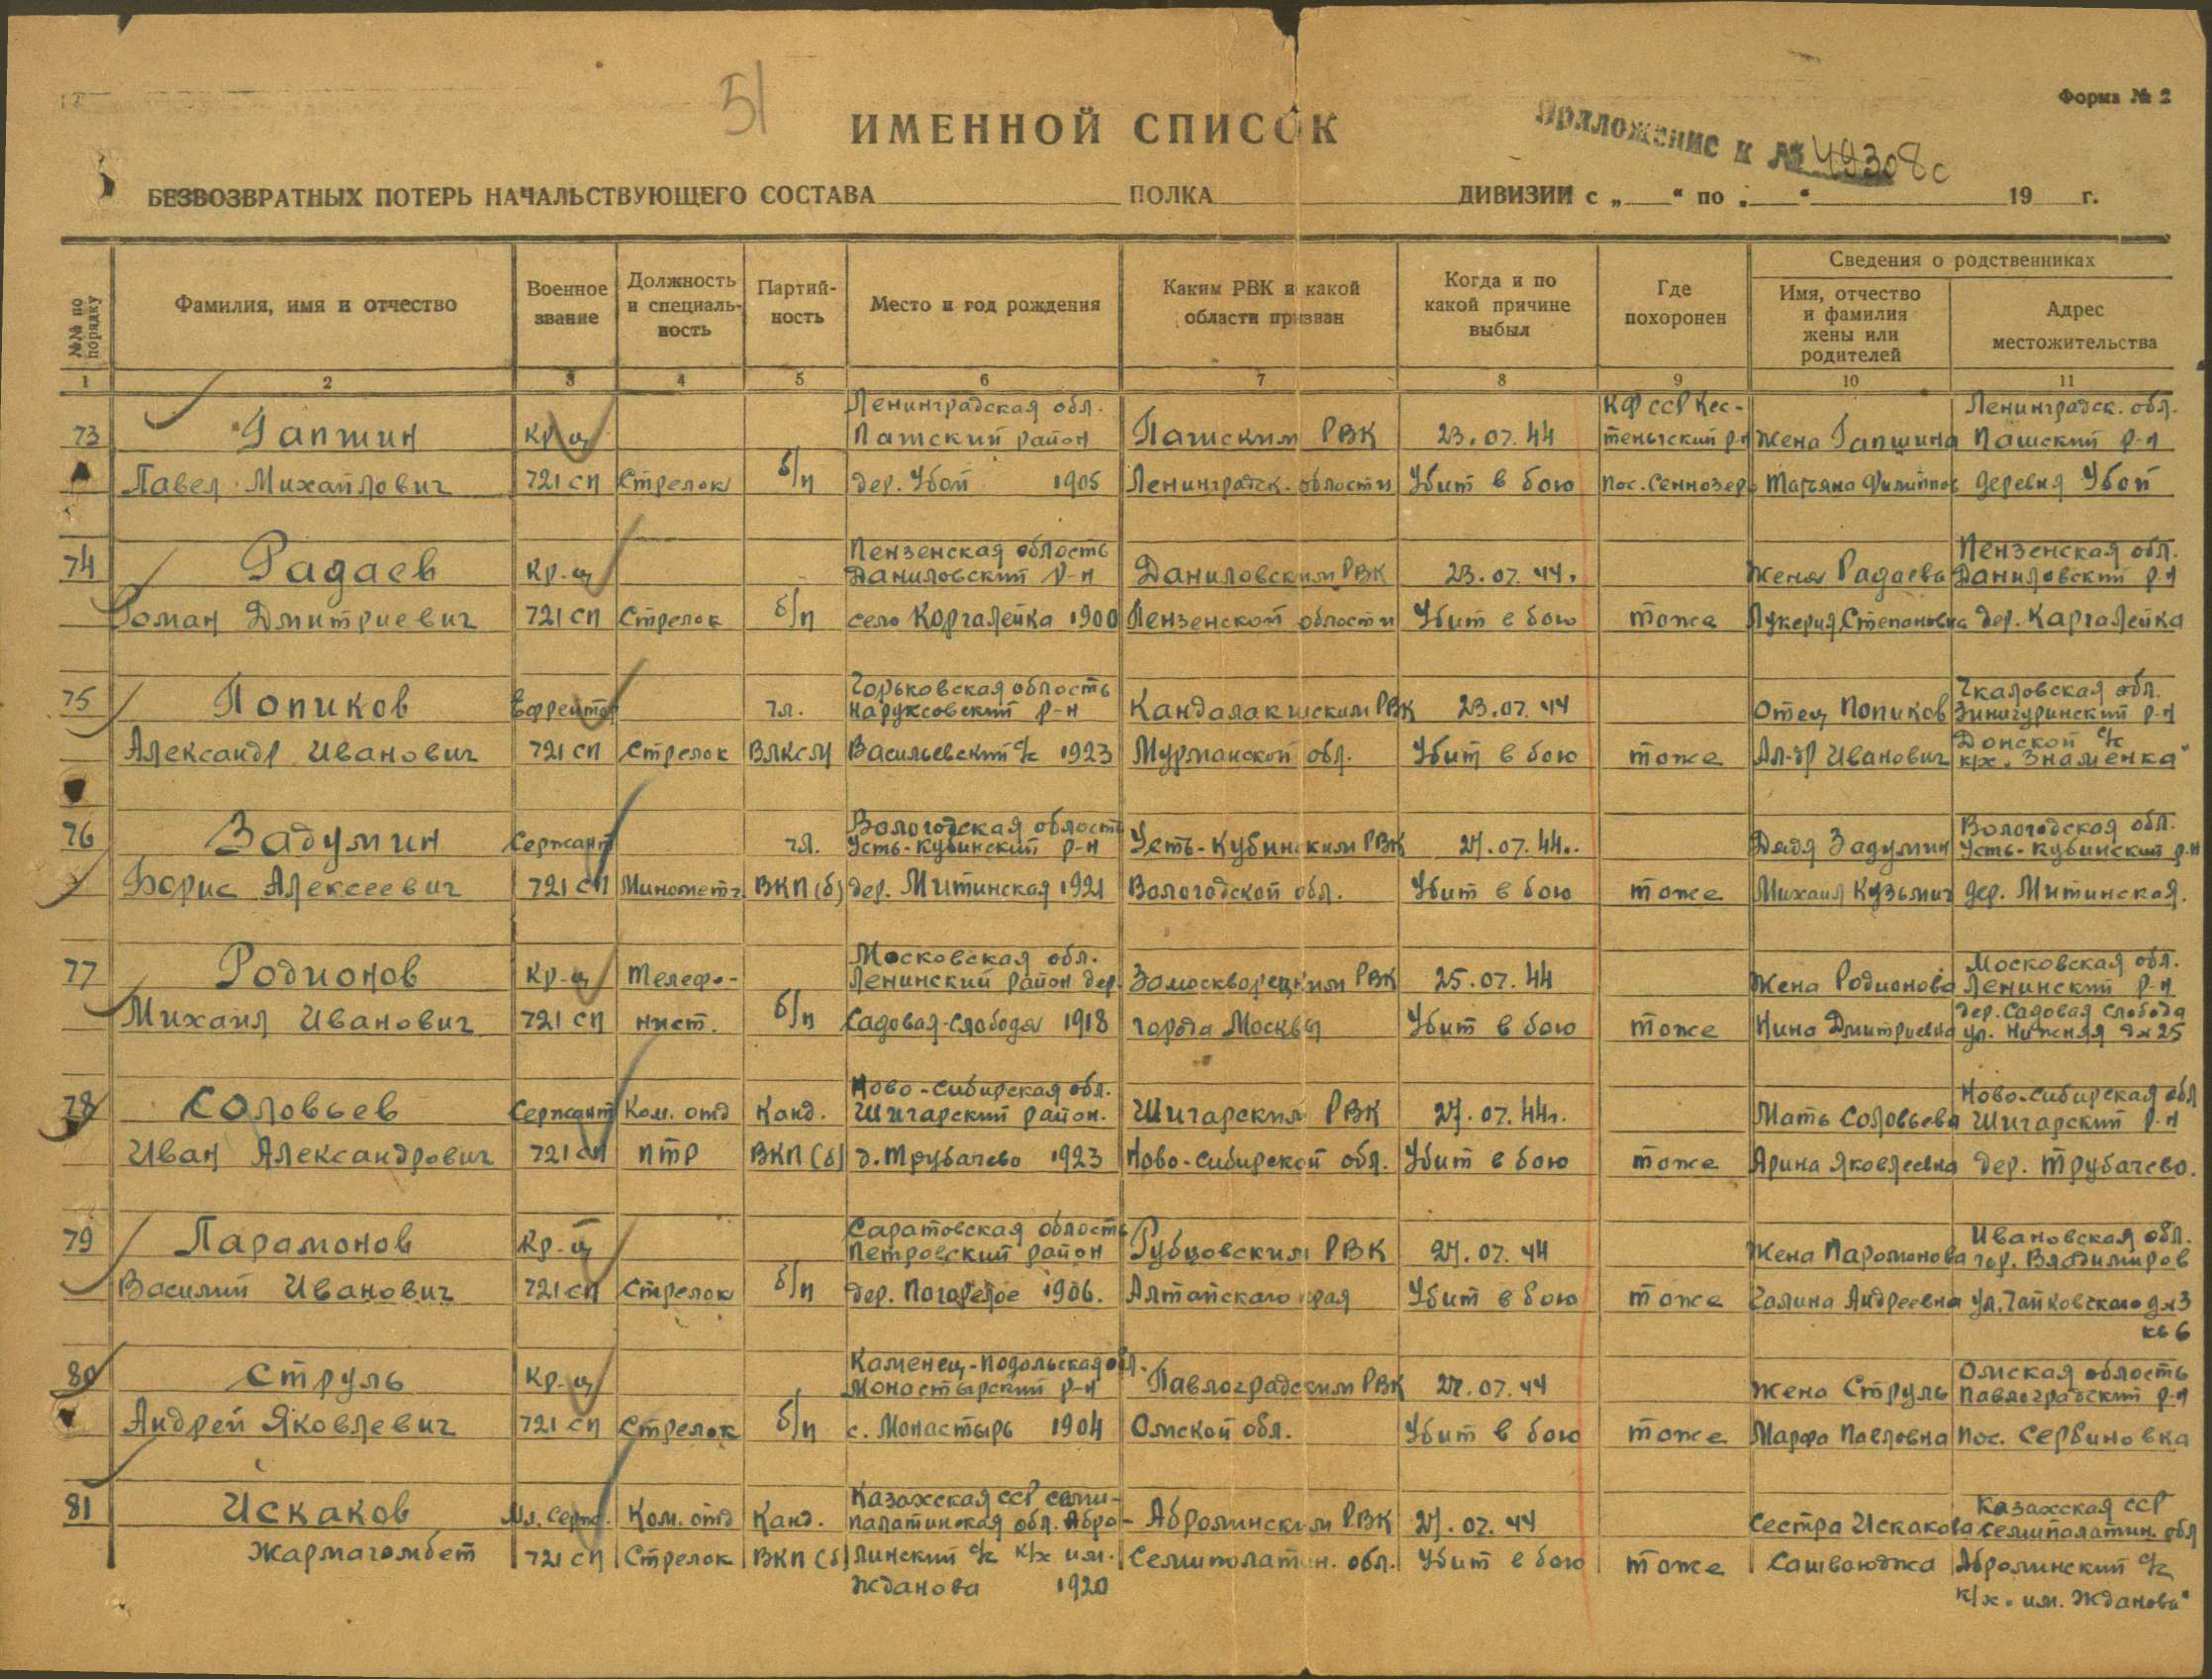 51
Форма № 2
ИМЕННОЙ СПИСОК
Приложение к № 49308с
БЕЗВОЗВРАТНЫХ ПОТЕРЬ НАЧАЛЬСТВУЮЩЕГО СОСТАВА ПОЛКА ДИВИЗИИ с „ “ по „ “ 19 г.
№№ по порядку
Фамилия, имя и отчество
Военное звание
Должность и специальность
Партийность
Место и год рождения
Каким РВК и какой области призван
Когда и по какой причине выбыл
Где похоронен
Сведения о родственниках
Имя, отчество и фамилия жены или родителей
Адрес местожительства
1 2 3 4 5 6 7 8 9 10 11
Ленинградская обл. КФССР Кес- Ленинградск. обл.
73 Гапшин Кр-ц Пашский район Пашским РВК 23.07.44 теньгский р-н Жена Гапшина Пашский р-н
Павел Михайлович 721 сп Стрелок б/п дер. Убой 1905 Ленинградск. области Убит в бою пос. Сеннозеро Татьяна Филиппов деревня Убой
Пензенская область Пензенская обл.
74 Радаев Кр-ц Даниловский р-н Даниловским РВК 23.07.44. Жена Радаева Даниловский р-н
Роман Дмитриевич 721 сп Стрелок б/п село Каргалейка 1900 Пензенской области Убит в бою тоже Лукерия Степановна дер. Каргалейка
Горьковская область Чкаловская обл.
75 Попиков Ефрейтор чл. Наруксовский р-н Кандалакшским РВК 23.07.44 Отец Попиков Зиничуринский р-н
Донской с/с
Александр Иванович 721 сп Стрелок ВЛКСМ Васильевский с/с 1923 Мурманской обл. Убит в бою тоже Ал-др Иванович к/х „Знаменка"
Вологодская область Вологодская обл.
76 Задумин Сержант чл. Усть-Кубинский р-н Усть-Кубинским РВК 27.07.44. Дядя Задумин Усть-Кубинский р-н
Борис Алексеевич 721 сп Минометч. ВКП(б) дер. Митинская 1921 Вологодской обл. Убит в бою тоже Михаил Кузьмич дер. Митинская.
Московская обл. Московская обл.
77 Родионов Кр-ц Телефо- Ленинский район дер. Замоскворецким РВК 25.07.44 Жена Родионова Ленинский р-н
дер. Садовая Слобода
Михаил Иванович 721 сп нист. б/п Садовая-Слобода 1918 города Москвы Убит в бою тоже Нина Дмитриевна ул. Нижняя д№25
Ново-Сибирская обл. Ново-Сибирская обл
78 Соловьев Сержант Ком. отд Канд. Шигарский район. Шигарским РВК 27.07.44г. Мать Соловьева Шигарский р-н
Иван Александрович 721 сп ПТР ВКП(б) д. Трубачево 1923 Ново-Сибирской обл. Убит в бою тоже Арина Яковлевна дер. Трубачево.
Саратовская область Ивановская обл.
79 Парамонов Кр-ц Петровский район Рубцовским РВК 27.07.44 Жена Парамонова гор. Владимиров
Василий Иванович 721 сп Стрелок б/п дер. Погорелое 1906. Алтайского края Убит в бою тоже Галина Андреевна ул. Чайковского д№3
кв 6
Каменец-Подольская обл. Омская область
80 Струль Кр-ц Монастырский р-н Павлоградским РВК 27.07.44 Жена Струль Павлоградский р-н
Андрей Яковлевич 721 сп Стрелок б/п с. Монастырь 1904 Омской обл. Убит в бою тоже Марфа Павловна пос. Сербиновка
Казахская ССР Семи- Казахская ССР
81 Искаков Мл. Серж. Ком. отд Канд. палатинская обл. Абра- Абралинским РВК 27.07.44 Сестра Искакова Семипалатин. обл
Жармагомбет 721 сп Стрелок ВКП(б) линский с/с к/х им. Семипалатин. обл. Убит в бою тоже Сашваюджа Абралинский с/с
Жданова 1920 к/х „им. Жданова"